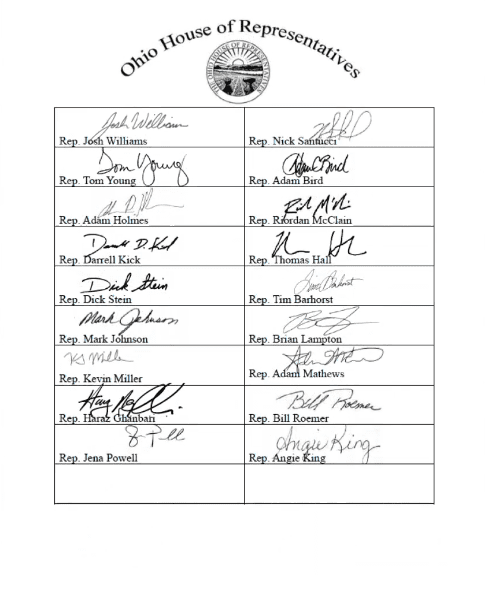 Ohio House of Representatives
THE OHIO HOUSE OF REPRESENTATIVES
Josh Williams
Rep. Josh Williams
Rep. Nick Santucci
Tom Young
Rep. Tom Young
Adam Bird
Rep. Adam Bird
Rep. Adam Holmes
Rep. Riordan McClain
Darrell D. Kick
Rep. Darrell Kick
Rep. Thomas Hall
Dick Stein
Rep. Dick Stein
Tim Barhorst
Rep. Tim Barhorst
Mark Johnson
Rep. Mark Johnson
Rep. Brian Lampton
K Miller
Rep. Kevin Miller
Rep. Adam Mathews
Rep. Haraz Ghanbari
Bill Roemer
Rep. Bill Roemer
Rep. Jena Powell
Angie King
Rep. Angie King